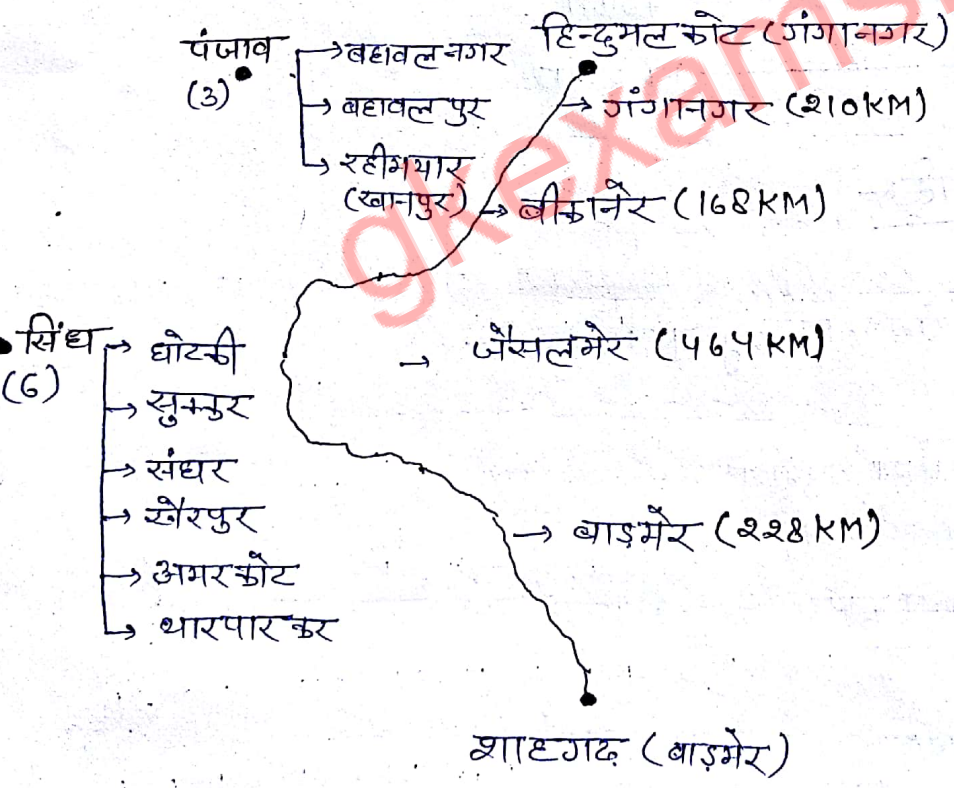 पंजाब
(3)
→ बहावलनगर
→ बहावलपुर
→ रहीमयार
(खानपुर)
हिन्दुमल कोट (गंगानगर)
→ गंगानगर (210KM)
→ बीकानेर (168KM)
→ जैसलमेर (464KM)
→ बाड़मेर (228KM)
शाहगढ (बाड़मेर)
सिंध
(6)
→ घोटकी
→ सुक्कुर
→ संघर
→ खैरपुर
→ अमरकोट
→ थारपारकर
gkexams